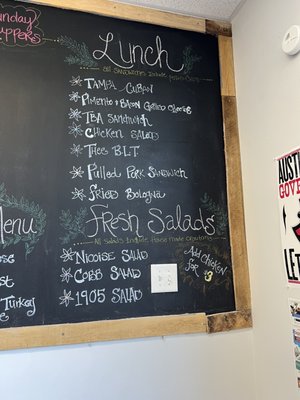 Sunday
Lunch
All Sandwiches Include
Tampa Cuban
Pimento & Bacon Grilled Cheese
TBA Sandwich
Chicken Salad
The B.L.T.
Pulled Pork Sandwich
Fried Bologna
Menu
Fresh Salads
All Salads Include House Made
Nicoise Salad
Cobb Salad
1905 Salad
Add Chicken
for $3
Turkey
AUST
GOVE
LE